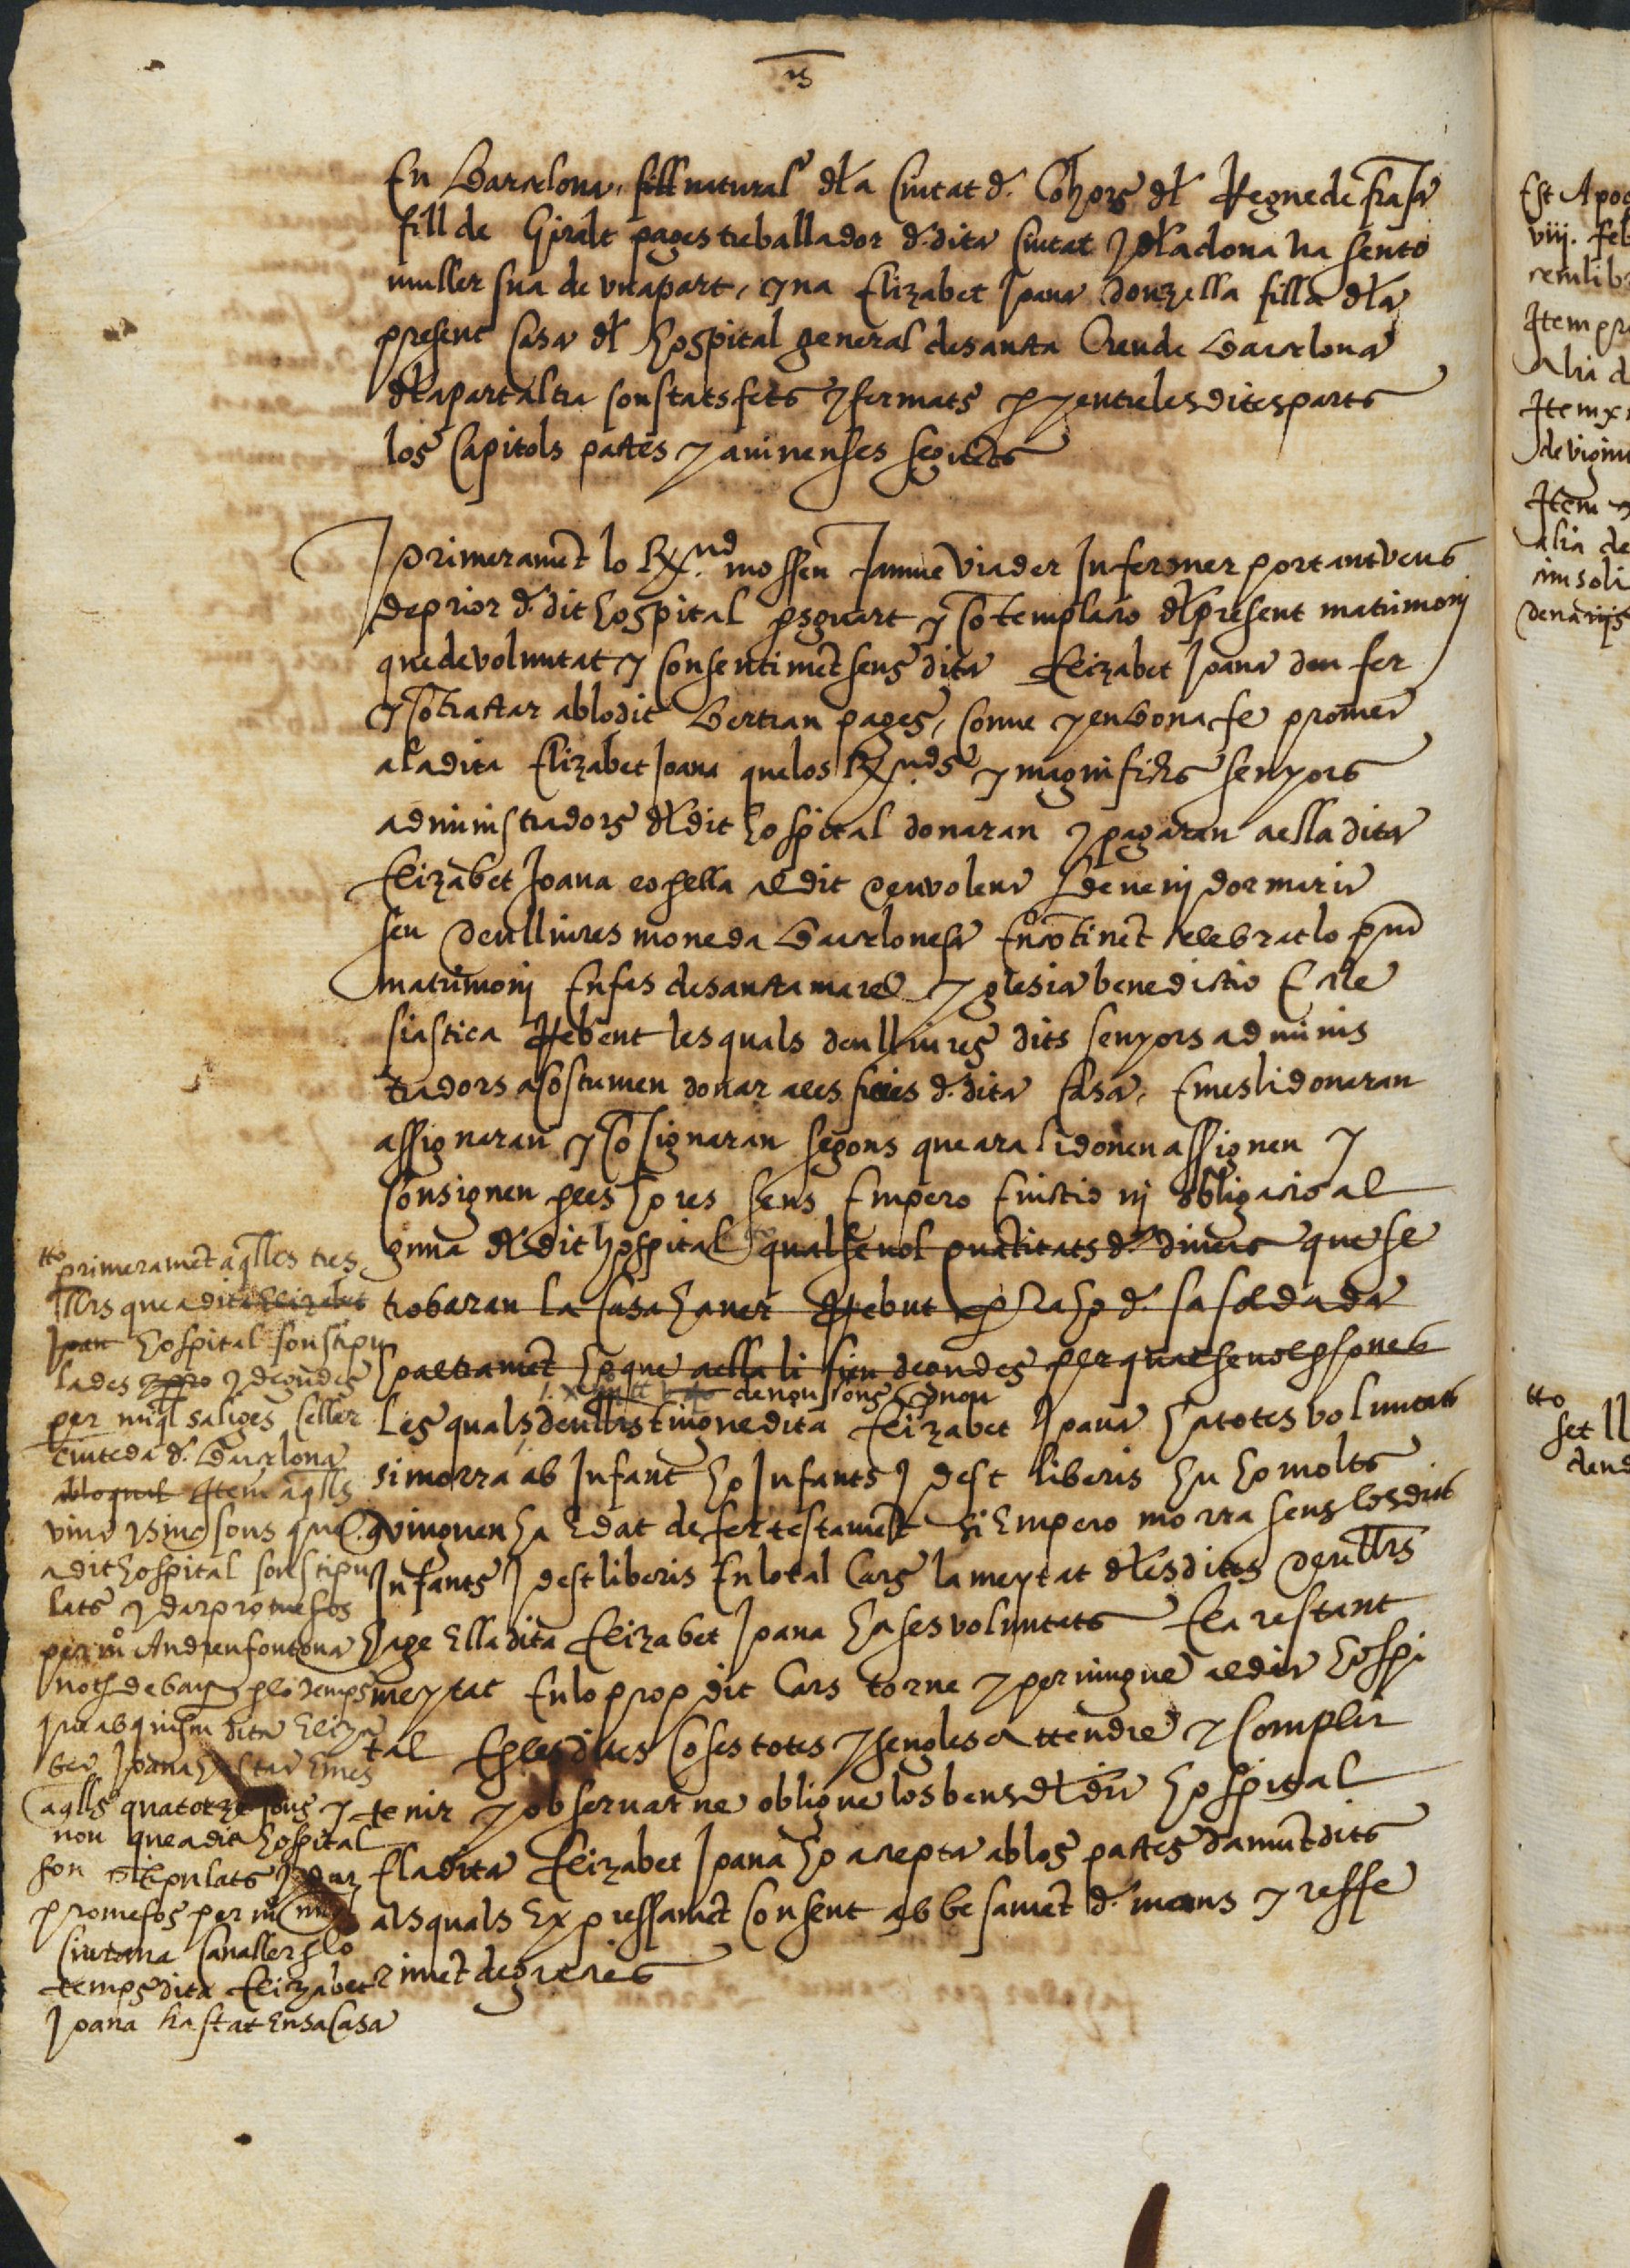 En Barcelona, fill natural dła Ciutat d. Cohors dł Regne de frasa
fill de Giralt pages treballador d. dita Ciutat y dła dona na sento
muller sua de una part, y na Elizabet Joana donzella filla dła
present Casa dł hospital general de santa Creu de Barcelona
dła part altra son stats fets y fermats p y entre les dites parts
los Capitols pactes y avinenses seguets
Primeramet lo Rx.nd mossen Jaume Viader Infermer portantveus
de prior d. dit hospital psguart y cotemplacio dł present matrimoni
que de voluntat y consentimet seus dita Elizabet Joana deu fer
y cotractar ab lo dit Bertran pages, conve y en bona fe promet
a la dita Elizabet Joana que los Rx.nds y magnifichs senyors
administradors dł dit hospital donaran y pagaran a ella dita
Elizabet Joana eo p ella al dit
seu deu lliures moneda Barcelonesa Encotinet celebrat lo pnt
matrimoni En fas de santa mare yglesia benedictio Ecle
siastica Rebent les quals deu lliures dits senyors adminis
tradors acostumen donar a les filles d. dita Casa, E mes li donaran
assignaran y cosignaran segons que ara li donen assignen y
consignen p les hores sens Empero Evictio ni obligacio al
guna dł dit hospital qualsevol quatitats d. diners que se
trobaran la Casa haver Rebut p Raho d. sa soldada
ho altramet ho que a ella li sien degudes per qualsevol psones
denou sous y nou
Les quals deu llrs tingue dita Elizabet Joana ha totes voluntats
si morra ab Infant ho Infants J dest liberis hu ho molts
q vinguen ha Edat de fer testamet si Empero morra sens los dits
Infants J dest liberis En lo tal Cars la meytat dłes dites deu llrs
hage Ella dita Elizabet Joana ha ses voluntats E la restant
meytat En lo prop dit Cars torne y pervingue al dit hospi
tal E p les dites Coses totes y sengles attendre y complir
tenir y observar ne obligue los bens dł dit hospital
E la dita Elizabet Joana ho accepta ab los pactes damut dits
als quals Expressamet consent ab besamet d. mans y reffe
rimet de gracies
tto primeramet aqlles tres
llrs que a dita Elizabet
Joan hospital son stipu
lades y degudes
per miql saliges seller
ciuteda d. Barcelona
ab lo qual Item aqlls
vint y sinc sous que
a dit hospital son stipu
lats y dar promesos
per mo Andreu fontona
noth de bar p lo temps
que ab quism dita Eliza
bet Joana ha star E mes
aqlls quatorze sous y
nou que a dit hospital
son stipulats y dar
promesos per m
Ciutona Cavaller p lo
temps dita Elizabet
Joana ha stat En sa Casa
Est Apoc
viij. feb
Item pr
Alia d
Item
de vigin
Item
alia de
cim soli
denariis
tto
set ll